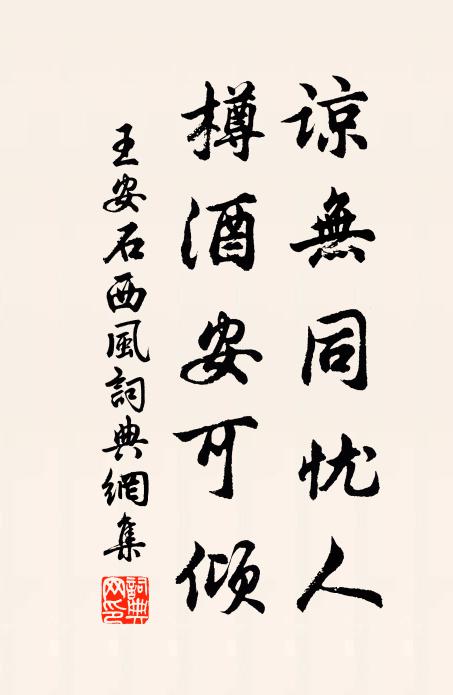 谅無同忧人
樽酒安可倾
王安石西風詞典網集
詞典网印